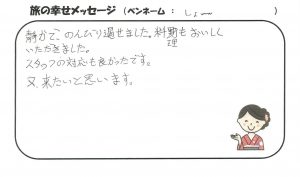 旅の幸せメッセージ (ペンネーム : しょー )
静かで、のんびり過せました。料理も おいしく
いただきました。
スタッフの対応も良かったです。
又、来たいと思います。